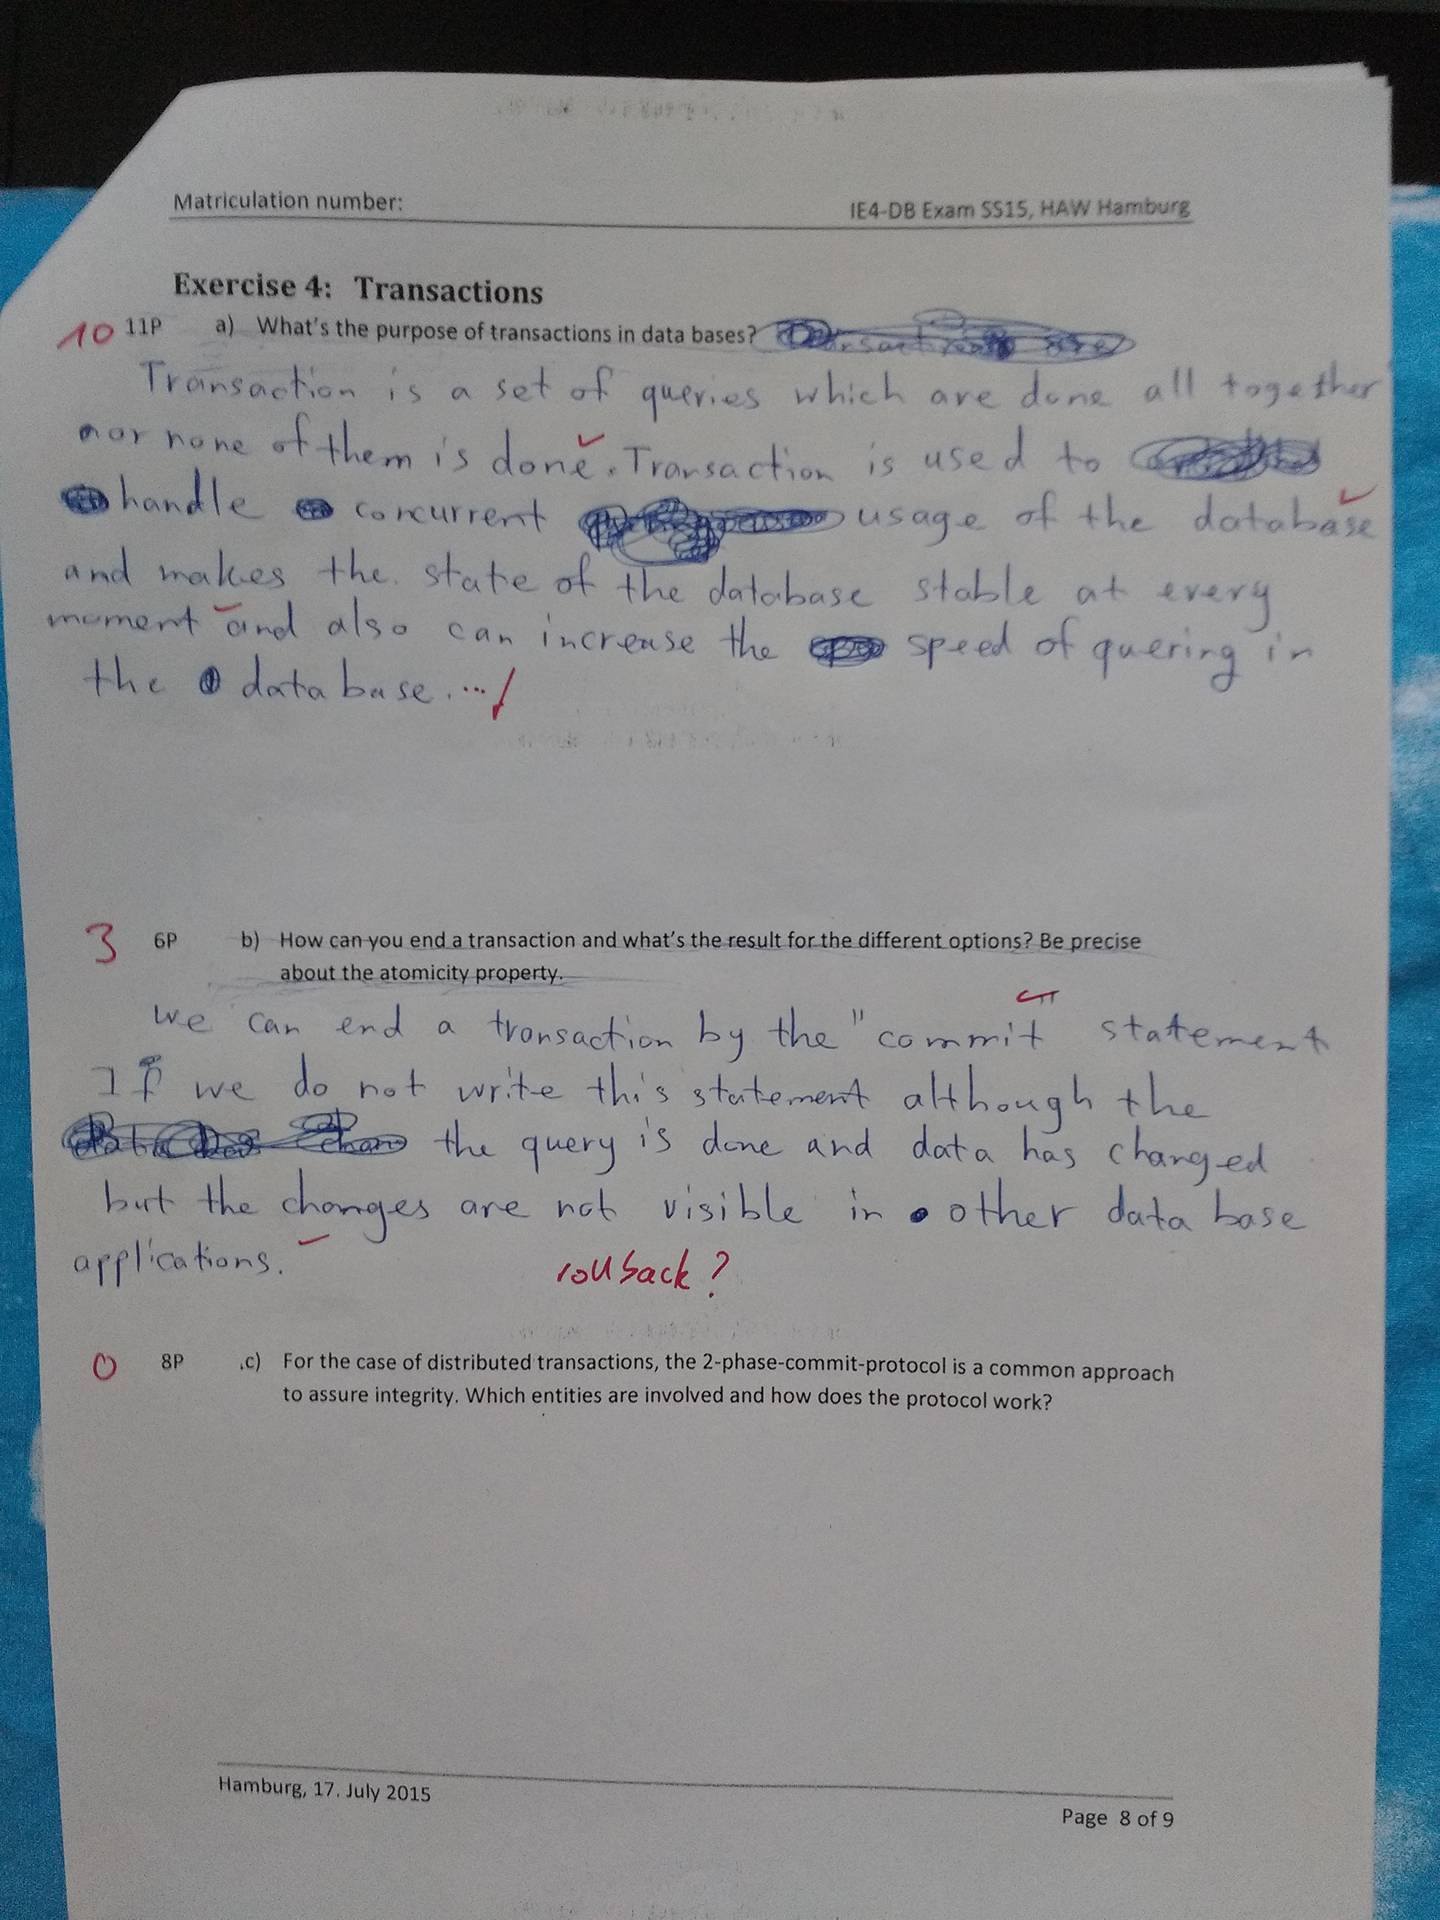 Matriculation number:
IE4-DB Exam SS15, HAW Hamburg
Exercise 4: Transactions
10 11P a) What's the purpose of transactions in data bases?
Transaction is a set of queries which are done all together
nor none of them is done. Transaction is used to
handle concurrent usage of the database
and makes the state of the database stable at every
moment and also can increase the speed of quering in
the database. ...
3 6P b) How can you end a transaction and what's the result for the different options? Be precise
about the atomicity property.
we can end a transaction by the "commit statement
If we do not write this statement although the
the query is done and data has changed
but the changes are not visible in other data base
applications.
rollback?
0 8P c) For the case of distributed transactions, the 2-phase-commit-protocol is a common approach
to assure integrity. Which entities are involved and how does the protocol work?
Hamburg, 17. July 2015
Page 8 of 9